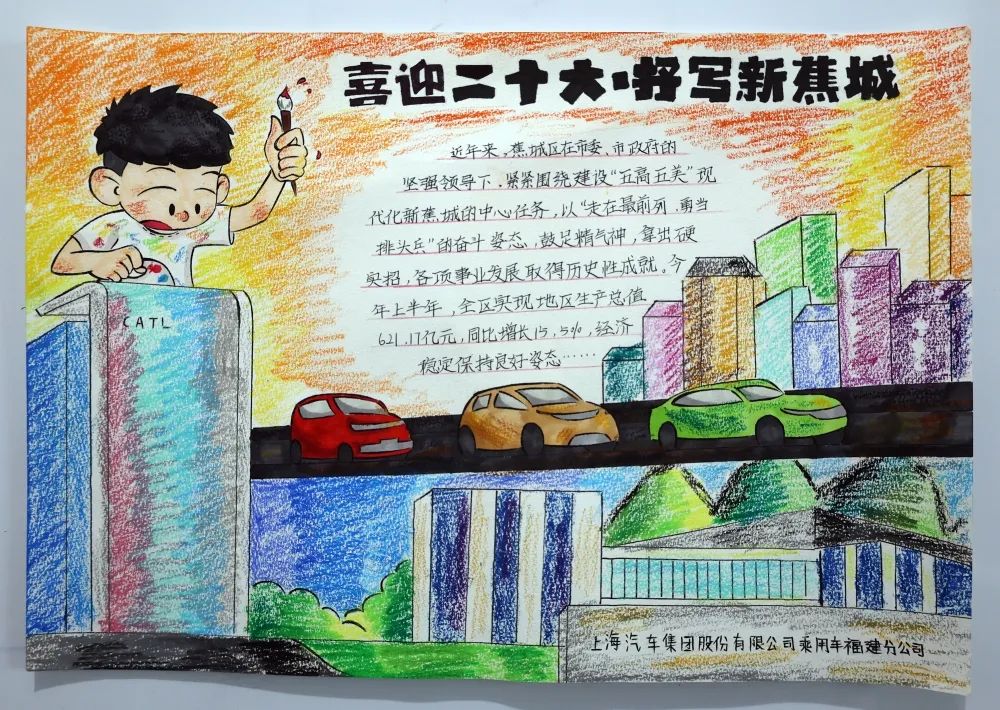 喜迎二十大·抒写新蕉城
近年来,蕉城区在市委、市政府的
坚强领导下,紧紧围绕建设“五高五美”现
代化新蕉城的中心任务,以“走在最前列、勇当
排头兵”的奋斗姿态,鼓足精气神,拿出硬
实招,各项事业发展取得历史性成就。今
年上半年,全区实现地区生产总值
621.17亿元,同比增长15.5%,经济
稳定保持良好姿态……
CATL
上海汽车集团股份有限公司乘用车福建分公司